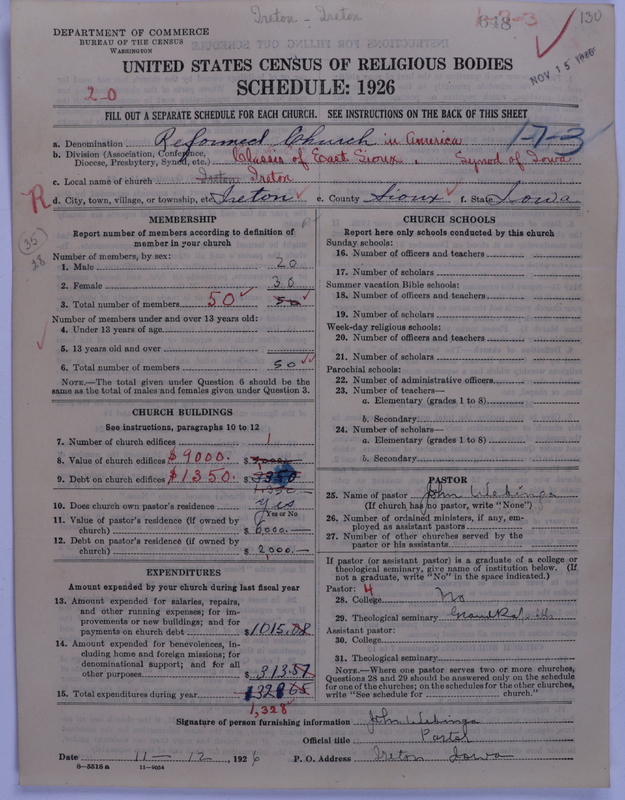 Ireton - Ireton
130
DEPARTMENT OF COMMERCE
BUREAU OF THE CENSUS
WASHINGTON
NOV 15
UNITED STATES CENSUS OF RELIGIOUS BODIES
SCHEDULE: 1926
2-0
FILL OUT A SEPARATE SCHEDULE FOR EACH CHURCH. SEE INSTRUCTIONS ON THE BACK OF THIS SHEET
1-7-3
a. Denomination Reformed Church in America
b. Division (Association, Conference, Diocese, Presbytery, Synod, etc.) Classis of East Sioux, Synod of Iowa
c. Local name of church Ireton Ireton
d. City, town, village, or township, etc. Ireton e. County Sioux f. State Iowa
R
35
28
MEMBERSHIP
Report number of members according to definition of
member in your church
Number of members, by sex:
1. Male 20
2. Female 30
3. Total number of members 50 50
Number of members under and over 13 years old:
4. Under 13 years of age
5. 13 years old and over
6. Total number of members 50
NOTE.—The total given under Question 6 should be the
same as the total of males and females given under Question 3.
CHURCH BUILDINGS
See instructions, paragraphs 10 to 12
7. Number of church edifices 1
8. Value of church edifices $9000. $
9. Debt on church edifices $1350. $ 3350
1350
10. Does church own pastor's residence Yes
Yes or No
11. Value of pastor's residence (if owned by
church) $ 6,000.—
12. Debt on pastor's residence (if owned by
church) $ 2,000.—
EXPENDITURES
Amount expended by your church during last fiscal year
13. Amount expended for salaries, repairs,
and other running expenses; for im-
provements or new buildings; and for
payments on church debt $1015.08
14. Amount expended for benevolences, in-
cluding home and foreign missions; for
denominational support; and for all
other purposes $ 313.57
15. Total expenditures during year 1328 65
1,328
CHURCH SCHOOLS
Report here only schools conducted by this church
Sunday schools:
16. Number of officers and teachers
17. Number of scholars
Summer vacation Bible schools:
18. Number of officers and teachers
19. Number of scholars
Week-day religious schools:
20. Number of officers and teachers
21. Number of scholars
Parochial schools:
22. Number of administrative officers
23. Number of teachers—
a. Elementary (grades 1 to 8)
b. Secondary
24. Number of scholars—
a. Elementary (grades 1 to 8)
b. Secondary
PASTOR
25. Name of pastor John Wubinga
(If church has no pastor, write "None")
26. Number of ordained ministers, if any, em-
ployed as assistant pastors
27. Number of other churches served by the
pastor or his assistants
If pastor (or assistant pastor) is a graduate of a college or
theological seminary, give name of institution below. (If
not a graduate, write "No" in the space indicated.)
Pastor: 4
28. College No
29. Theological seminary
Assistant pastor:
30. College
31. Theological seminary
NOTE.—Where one pastor serves two or more churches,
Questions 28 and 29 should be answered only on the schedule
for one of the churches; on the schedules for the other churches,
write "See schedule for church."
Signature of person furnishing information John Wubinga
Official title Pastor
Date 11 - 12, 1926 P. O. Address Ireton Iowa
8—5518 a 11—9054